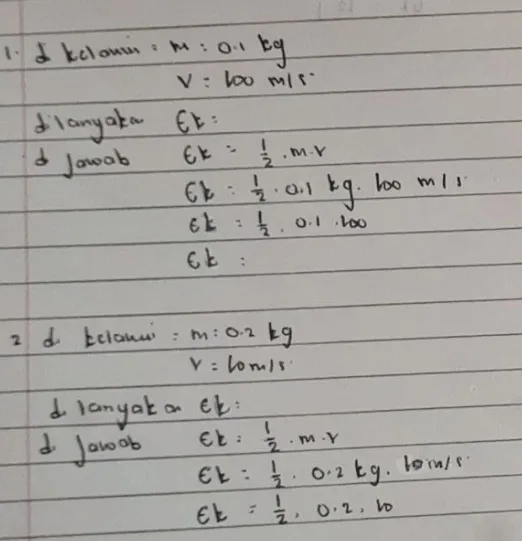 1. d ketahui : m : 0.1 kg
V = 100 m/s.
ditanyakan Ek :
d Jawab Ek = 1/2 . m . v
Ek = 1/2 . 0.1 kg . 100 m/s
Ek = 1/2 . 0.1 . 100
Ek :
2 d. ketahui : m : 0.2 kg
V = 10 m/s.
d tanyakan Ek :
d Jawab Ek : 1/2 . m . v
Ek = 1/2 . 0.2 kg . 10 m/s.
Ek = 1/2 . 0.2 . 10